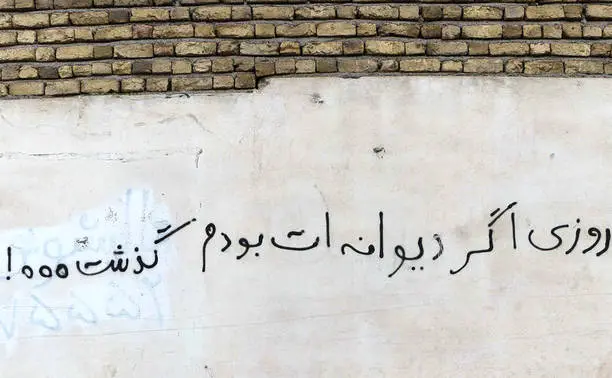 روزی اگر دیوانه ات بودم گذشت ...!